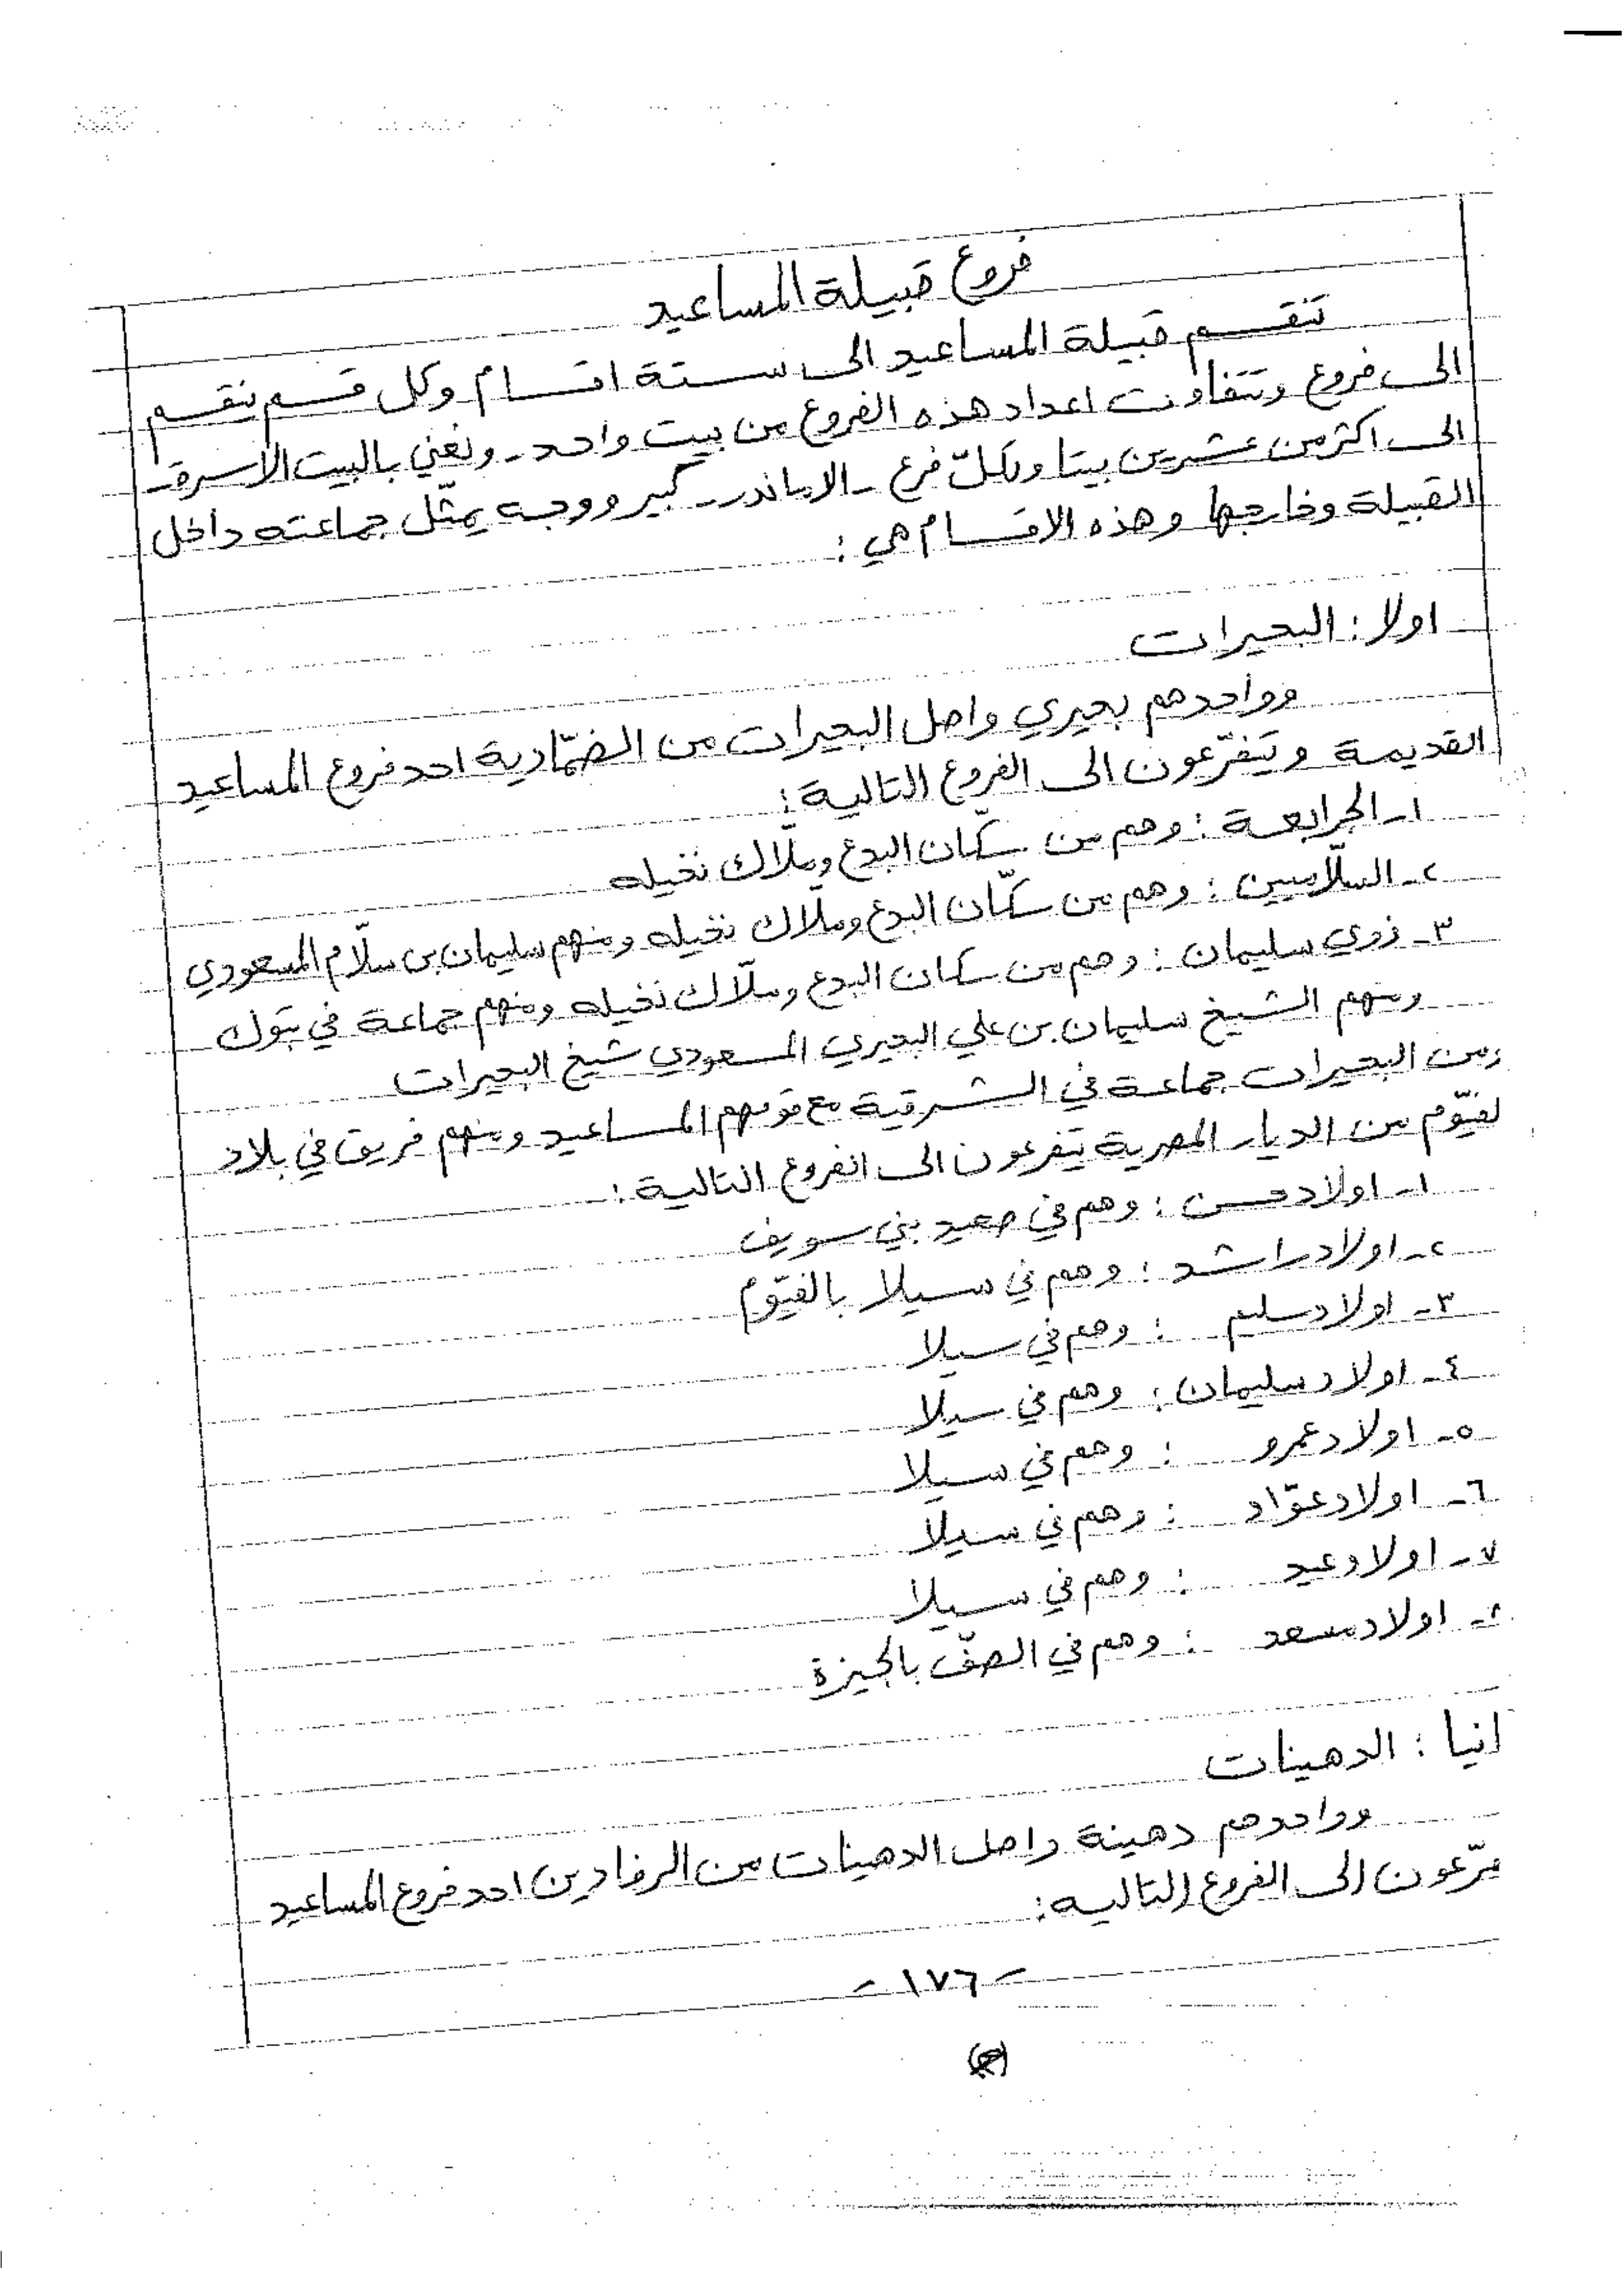 فروع قبيلة المساعيد
تنقسم قبيلة المساعيد الى ستة اقسام وكل قسم ينقسم
الى فروع وتتفاوت اعداد هذه الفروع من بيت واحد - ونعني بالبيت الاسرة -
الى اكثر من عشرين بيتا ولكلّ فرع - الا ماندر - كبير ووجه يمثّل جماعته داخل
القبيلة وخارجها وهذه الاقسام هي :
اولا : البحيرات
وواحدهم بحيري واصل البحيرات من الضمّادية احد فروع المساعيد
القديمة ويتفرّعون الى الفروع التالية :
١- الجرابعة : وهم من سكّان البدع وملّاك نخيله
٢- السلّاميين : وهم من سكّان البدع وملّاك نخيله ومنهم سليمان بن سلّام المسعودي
٣- ذوي سليمان : وهم من سكان البدع وملّاك نخيله ومنهم جماعة في تبوك
ومنهم الشيخ سليمان بن علي البحيري المسعودي شيخ البحيرات
ومن البحيرات جماعة في الشرقية مع قومهم المساعيد ومنهم فريق في بلاد
لفيّوم من الديار المصرية يتفرعون الى الفروع التالية :
١- اولاد حسن : وهم في صعيد بني سويف
٢- اولاد راشد : وهم في سيلا بالفيّوم
٣- اولاد سليم : وهم في سيلا
٤- اولاد سليمان : وهم في سيلا
٥- اولاد عمرو : وهم في سيلا
٦- اولاد عوّاد : وهم في سيلا
٧- اولاد عيد : وهم في سيلا
٨- اولاد سعد : وهم في الصفّ بالجيزة
انيا : الدهينات
وواحدهم دهينة واصل الدهينات من الرفادين احد فروع المساعيد
فرّعون الى الفروع التاليه :
- ١٧٦ -